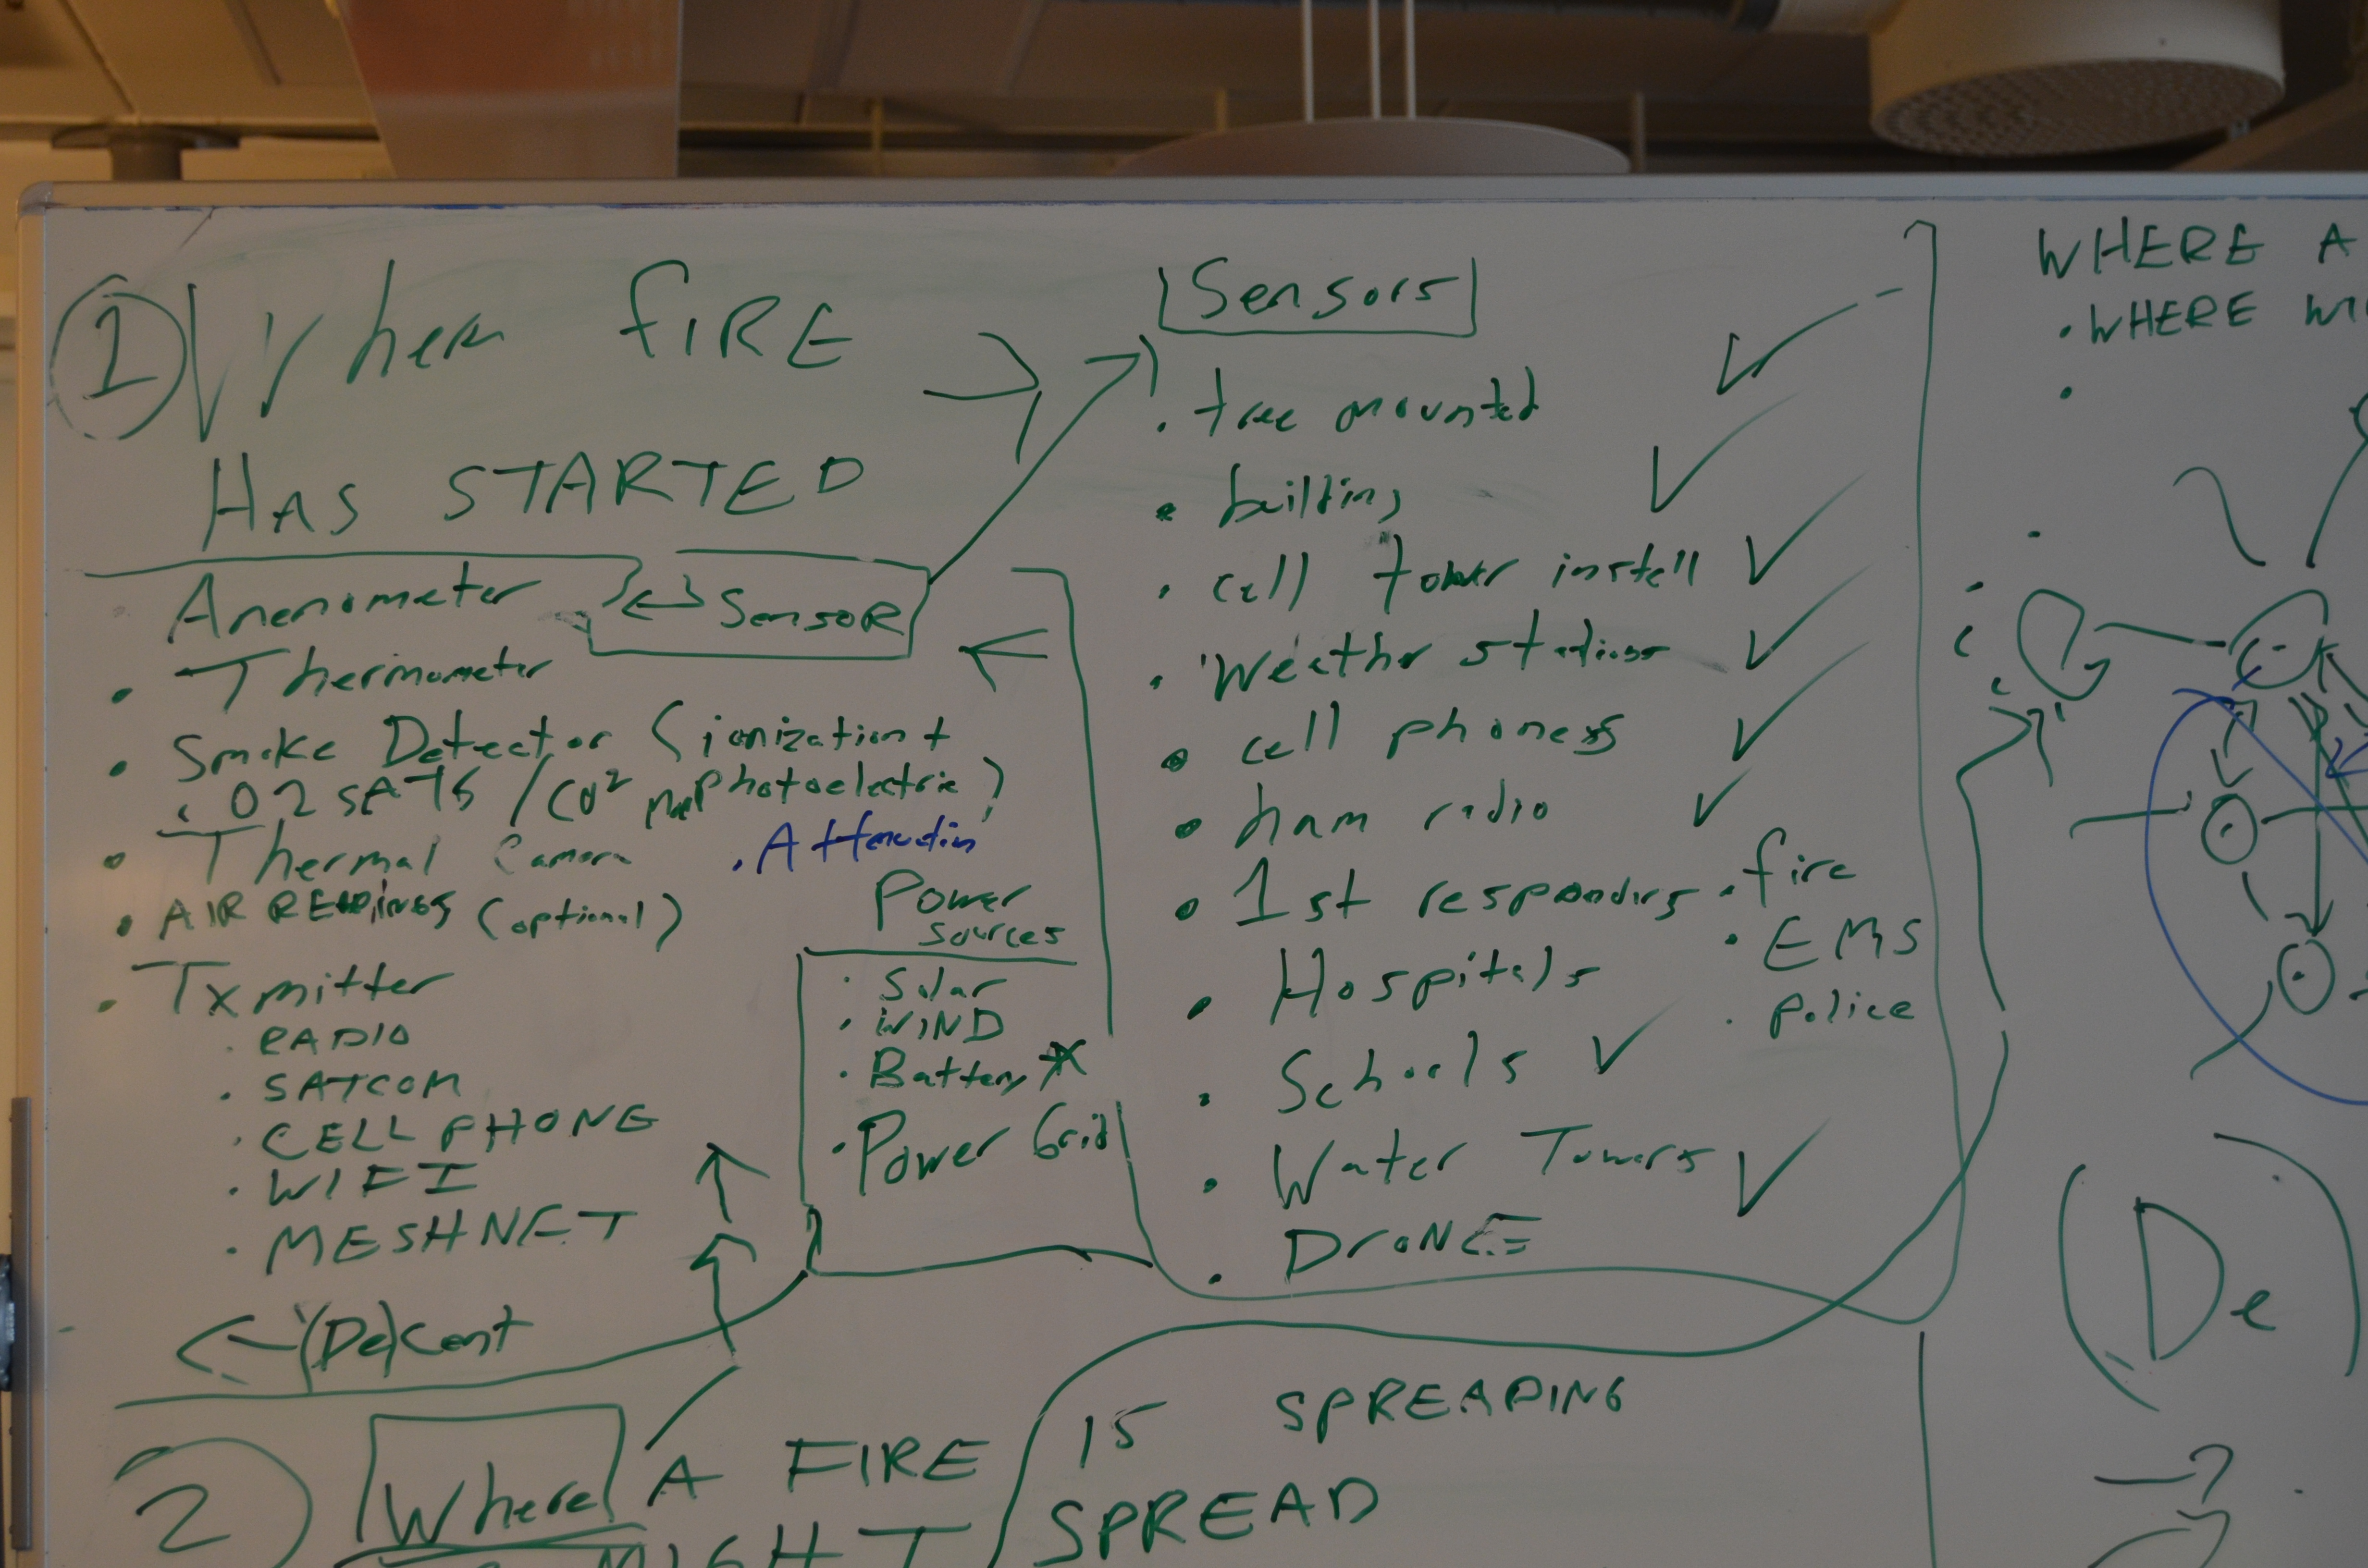 1 When fIRE
HAS STARTED
Anenometer
← Sensor
• Thermometer
• Smoke Detector (ionization +
photoelectric)
• O2 SATS / CO²
• Thermal Camera
• Attenuation
• AIR READINGS (optional)
• Txmitter
• RADIO
• SATCOM
• CELL PHONE
• WIFI
• MESHNET
← (De)Cent
Power
sources
• Solar
• WIND
• Battery *
• Power Grid
Sensors
• tree mounted ✓
• building ✓
• cell tower install ✓
• Weather stations ✓
• cell phones ✓
• ham radio ✓
• 1st responders
• fire
• EMS
• police
• Hospitals
• Schools ✓
• Water Towers ✓
• DroNE
2 Where A FIRE IS SPREADING
MIGHT SPREAD
WHERE A
• WHERE WI
De